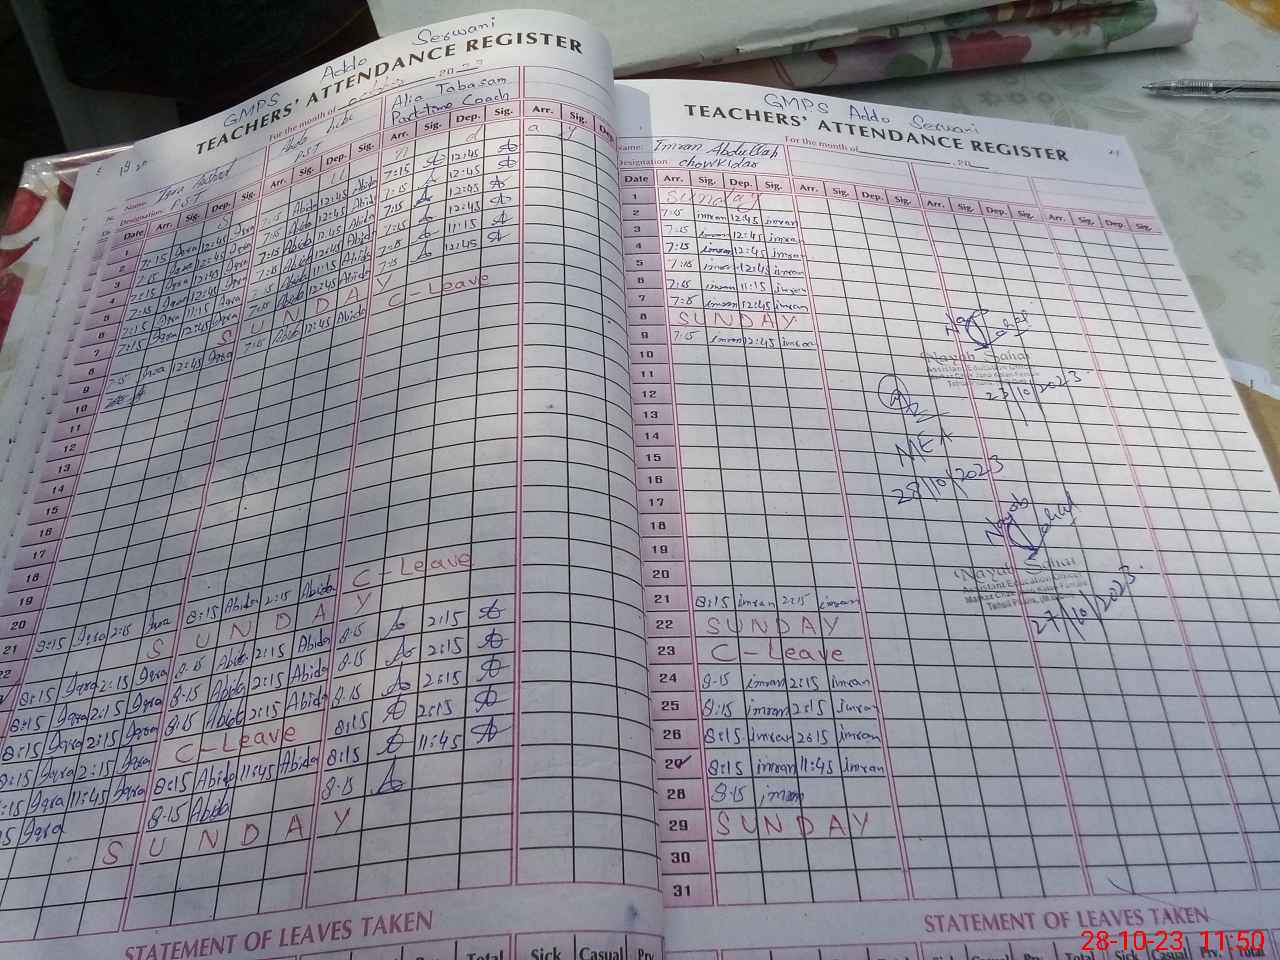 GMPS Addo Serwani
TEACHERS' ATTENDANCE REGISTER
For the month of
Name:
Designation: PST
PST
Alia Tabasam
Part time Coach
Date Arr. Sig. Dep. Sig. Arr. Sig. Dep. Sig. Arr. Sig. Dep. Sig. Arr. Sig. Dep.
1
2 7:15 Iqra 12:45 Iqra 7:15 Abida 12:45 Abida 7:15 12:45
3 7:15 Iqra 12:45 Iqra 7:15 Abida 12:45 Abida 7:15 12:45
4 7:15 Iqra 12:45 Iqra 7:15 Abida 12:45 Abida 7:15 12:45
5 7:15 Iqra 12:45 Iqra 7:15 Abida 12:45 Abida 7:15 12:45
6 7:15 Iqra 11:15 Iqra 7:15 Abida 11:15 Abida 7:15 11:15
7 7:15 Iqra 12:45 Iqra 7:15 Abida 12:45 Abida 7:15 12:45
8 SUNDAY
9 7:15 Iqra 12:45 Iqra 7:15 Abida 12:45 Abida C-Leave
10
11
12
13
14
15
16
17
18
19
20
21 8:15 Iqra 2:15 Iqra 8:15 Abida 2:15 Abida C-Leave
22 SUNDAY
8:15 Iqra 2:15 Iqra 8:15 Abida 2:15 Abida 8:15 2:15
8:15 Iqra 2:15 Iqra 8:15 Abida 2:15 Abida 8:15 2:15
8:15 Iqra 2:15 Iqra 8:15 Abida 2:15 Abida 8:15 2:15
8:15 Iqra 2:15 Iqra C-Leave 8:15 2:15
8:15 Iqra 11:45 Iqra 8:15 Abida 11:45 Abida 8:15 11:45
Iqra 8:15 Abida 8:15
SUNDAY
STATEMENT OF LEAVES TAKEN
Total Sick Casual Prv.
GMPS Addo Serwani
TEACHERS' ATTENDANCE REGISTER
Name: Imran Abdullah
For the month of 20
Designation: Chowkidar
Date Arr. Sig. Dep. Sig. Arr. Sig. Dep. Sig. Arr. Sig. Dep. Sig. Arr. Sig. Dep. Sig.
1 Sunday
2 7:15 imran 12:45 imran
3 7:15 imran 12:45 imran
4 7:15 imran 12:45 imran
5 7:15 imran 12:45 imran
6 7:15 imran 11:15 imran
7 7:15 imran 12:45 imran
8 SUNDAY
9 7:15 imran 12:45 imran
10
11
12
13
14
15
16
17
18
19
20
21 8:15 imran 2:15 imran
22 SUNDAY
23 C-Leave
24 8:15 imran 2:15 imran
25 8:15 imran 2:15 imran
26 8:15 imran 2:15 imran
27 8:15 imran 11:45 imran
28 8:15 imran
29 SUNDAY
30
31
Nayab Sahai
Assistant Education Officer
23/10/2023
MEA
28/10/2023
Nayab Sahai
Assistant Education Officer
27/10/2023
STATEMENT OF LEAVES TAKEN
Sick Casual Prv. Total Sick Casual Prv. Total
28-10-23 11:50